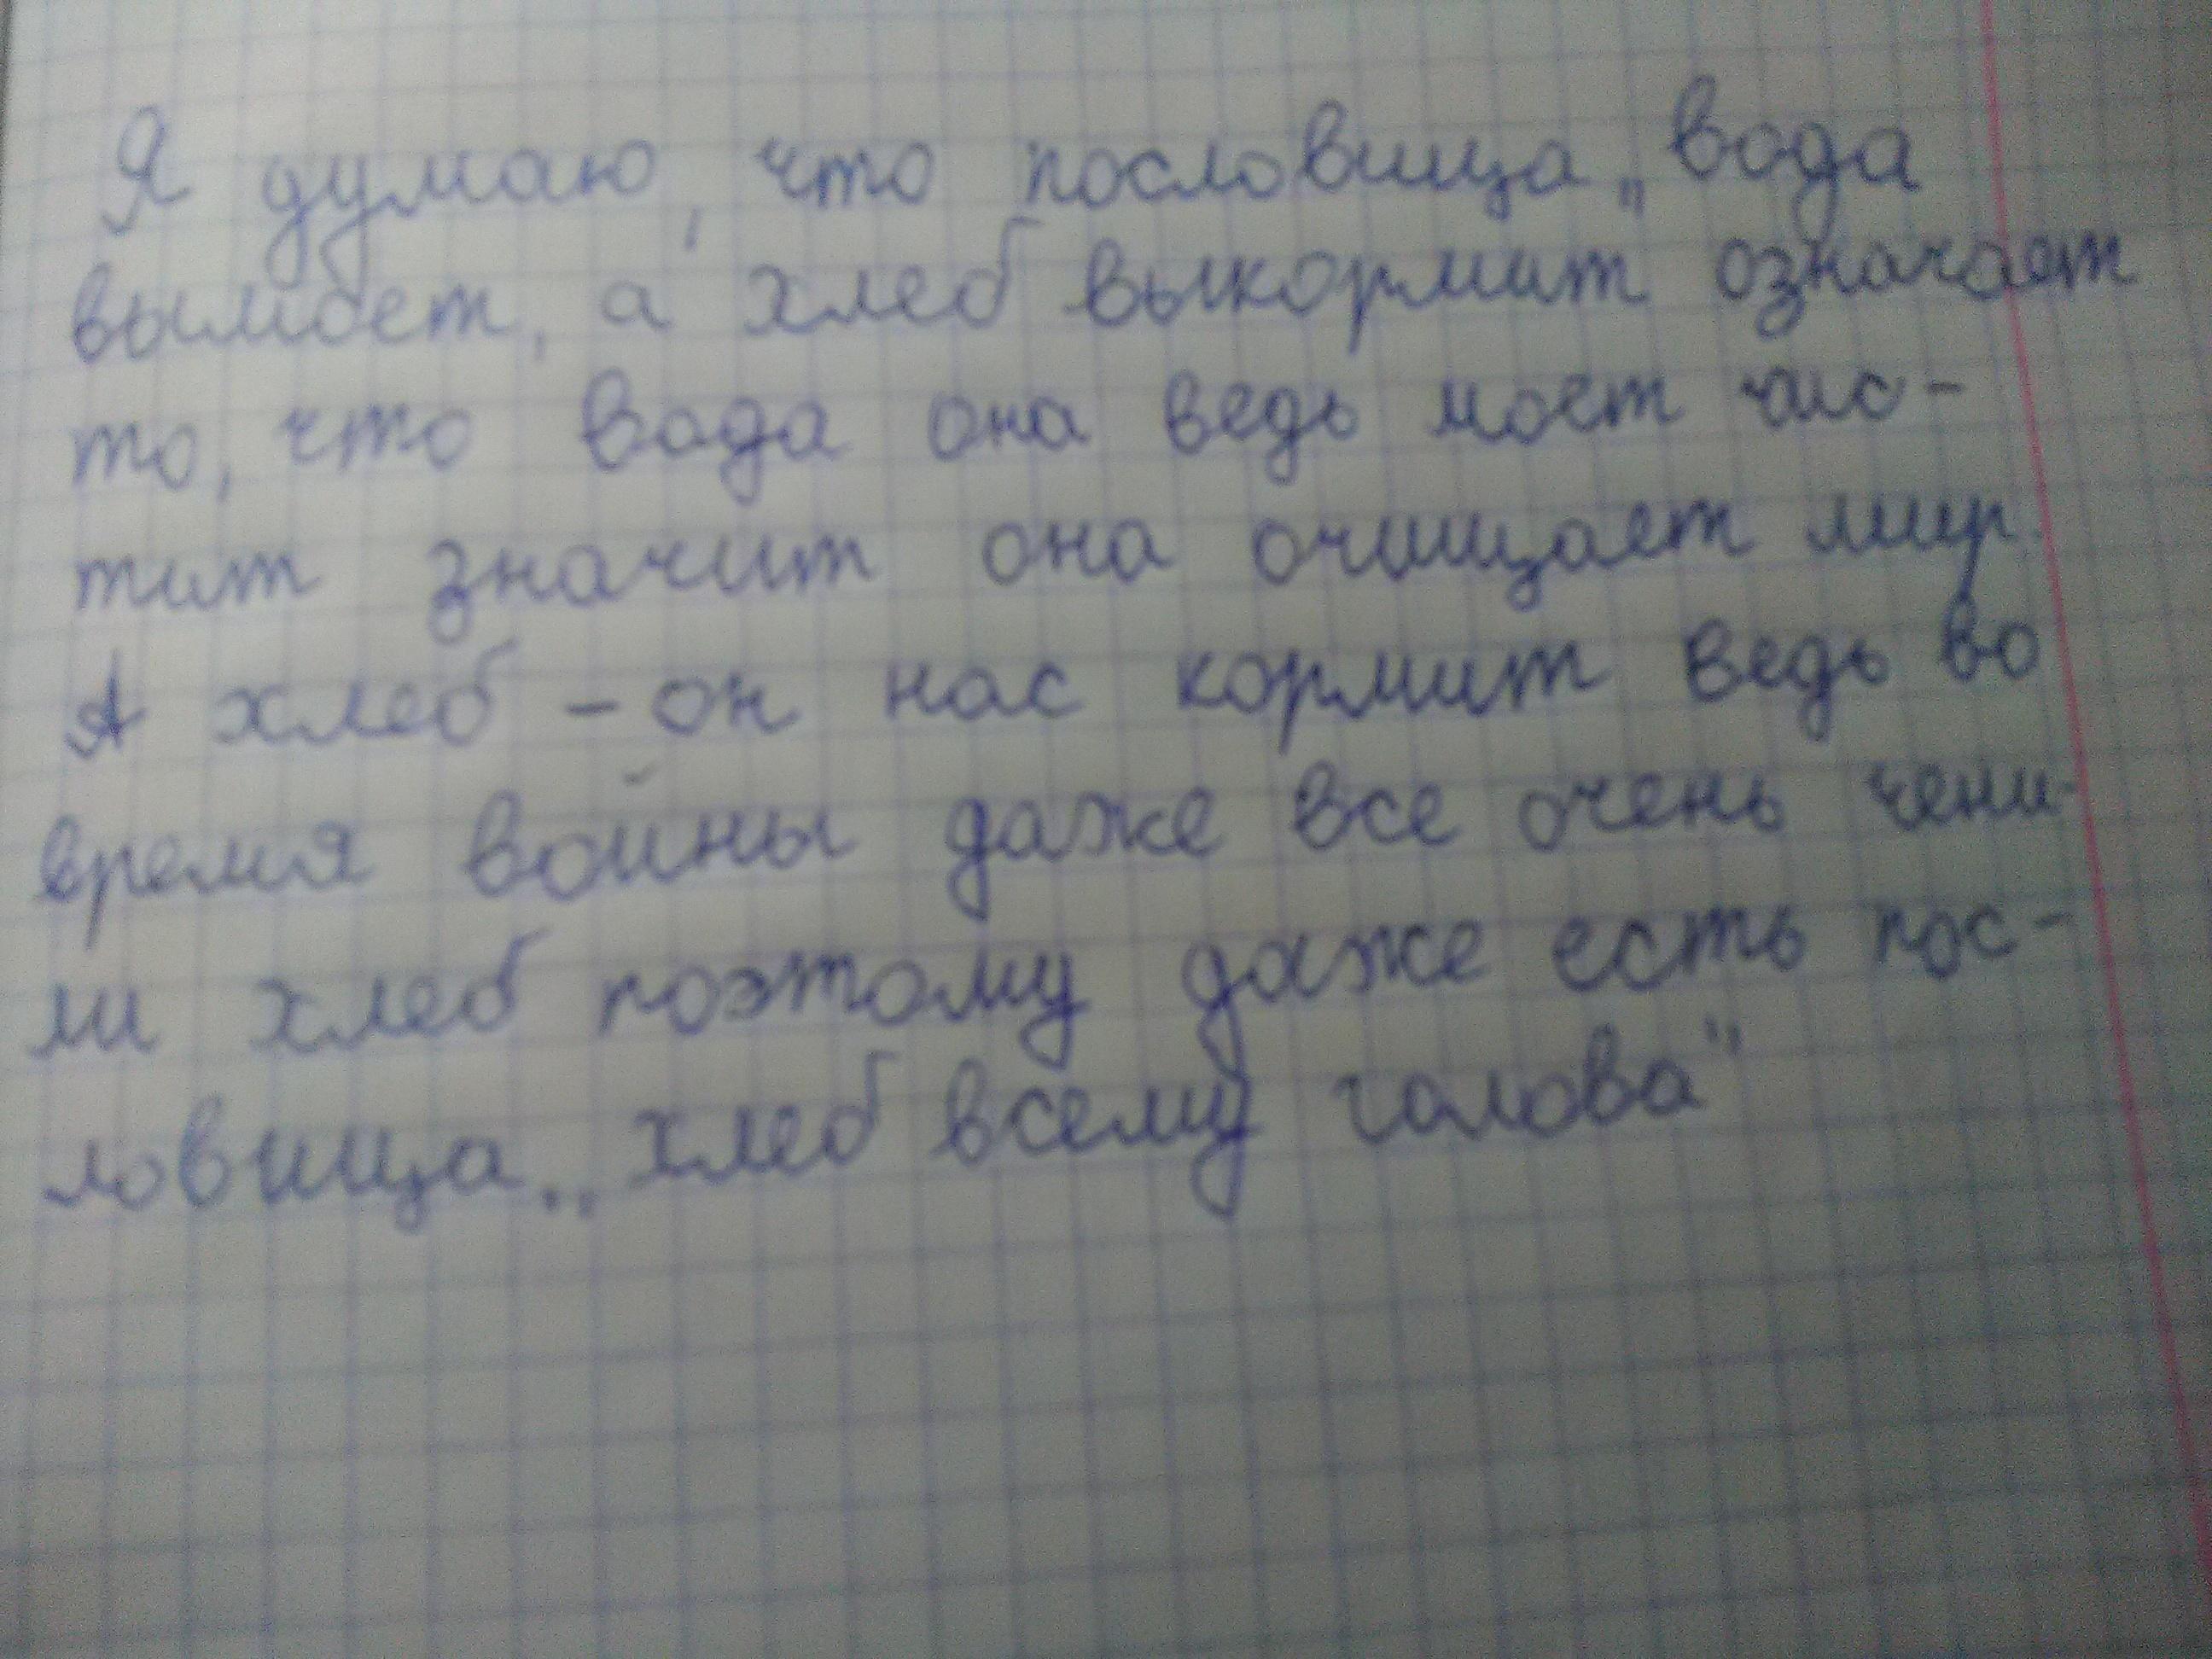 Я думаю, что пословица „вода
вымоет, а хлеб выкормит означает
то, что вода она ведь моет чис-
тит значит она очищает мир.
А хлеб - он нас кормит ведь во
время войны даже все очень чени-
ли хлеб поэтому даже есть пос-
ловица „хлеб всему голова"